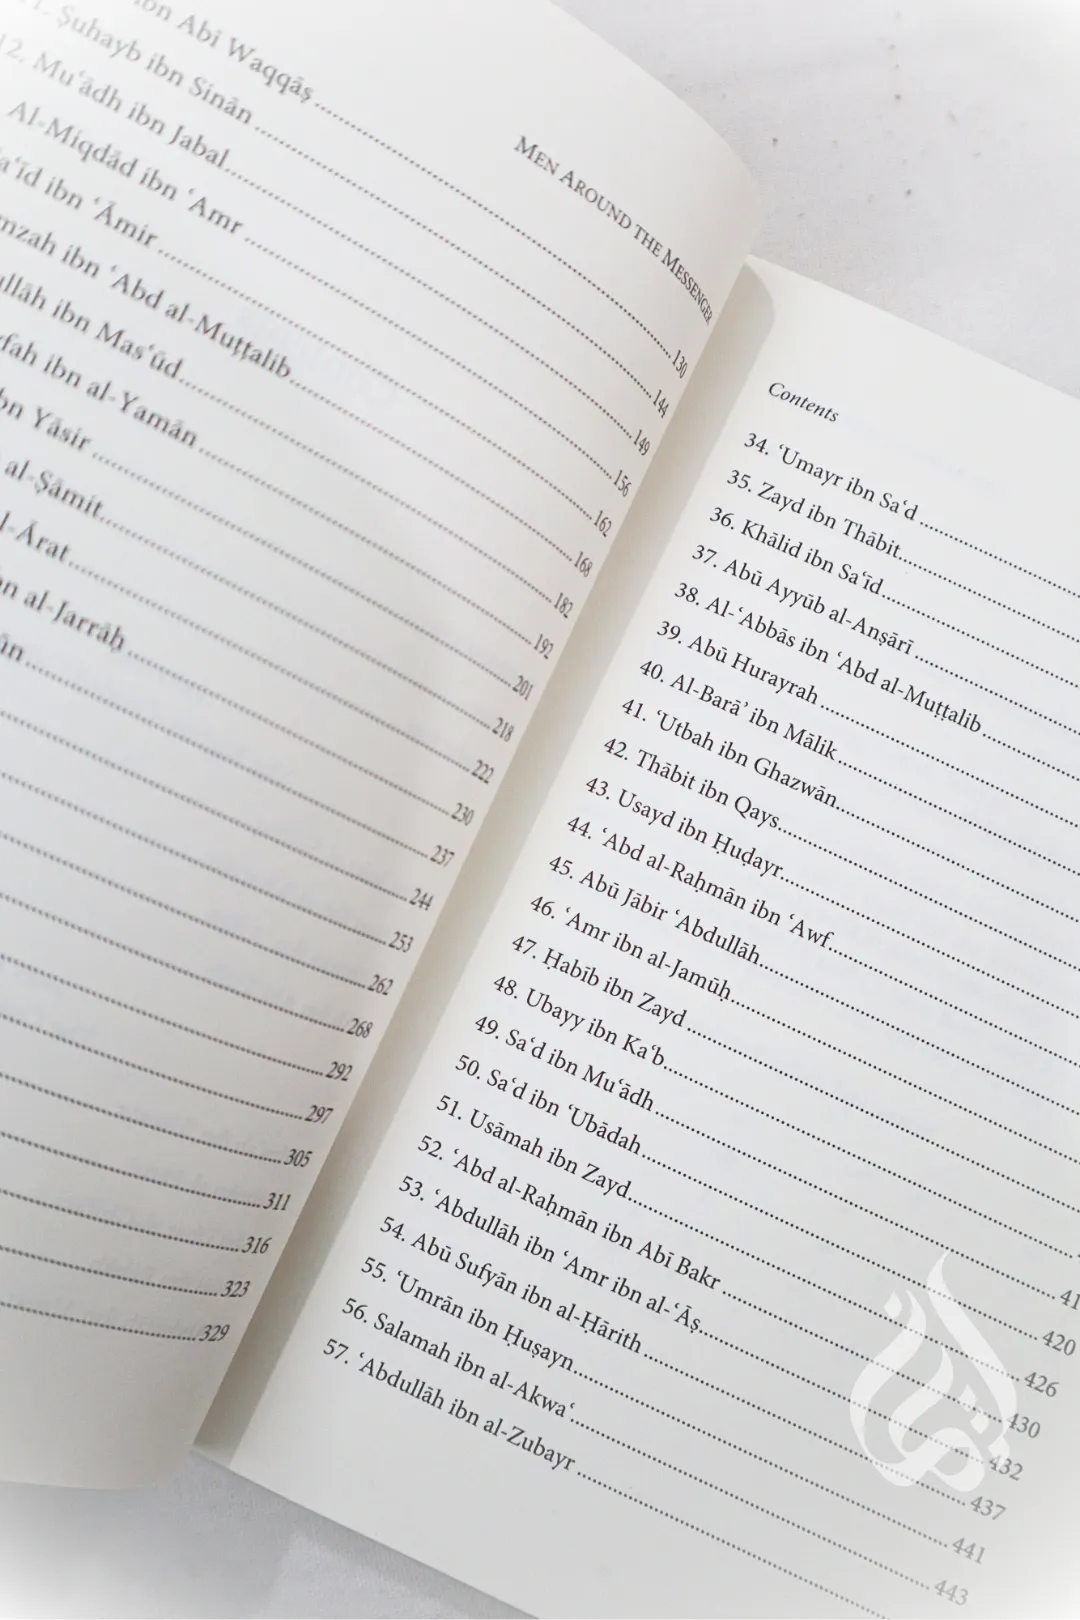 MEN AROUND THE MESSENGER
ibn Abī Waqqāṣ 130
Ṣuhayb ibn Sinān 144
12. Mu‘ādh ibn Jabal 149
Al-Miqdād ibn ‘Amr 156
ibn ‘Āmir 162
ibn ‘Abd al-Muṭṭalib 168
ibn Mas‘ūd 182
ibn al-Yamān 192
Yāsir 201
al-Ṣāmit 218
Arat 222
al-Jarrāḥ 230
237
244
253
262
268
292
297
305
311
316
323
329
Contents
34. ‘Umayr ibn Sa‘d
35. Zayd ibn Thābit
36. Khālid ibn Sa‘īd
37. Abū Ayyūb al-Anṣārī
38. Al-‘Abbās ibn ‘Abd al-Muṭṭalib
39. Abū Hurayrah
40. Al-Barā’ ibn Mālik
41. ‘Utbah ibn Ghazwān
42. Thābit ibn Qays
43. Usayd ibn Ḥuḍayr
44. ‘Abd al-Raḥmān ibn ‘Awf
45. Abū Jābir ‘Abdullāh
46. ‘Amr ibn al-Jamūḥ
47. Ḥabīb ibn Zayd
48. Ubayy ibn Ka‘b
49. Sa‘d ibn Mu‘ādh
50. Sa‘d ibn ‘Ubādah 420
51. Usāmah ibn Zayd 426
52. ‘Abd al-Raḥmān ibn Abī Bakr 430
53. ‘Abdullāh ibn ‘Amr ibn al-‘Āṣ 432
54. Abū Sufyān ibn al-Ḥārith 437
55. ‘Umrān ibn Ḥuṣayn 441
56. Salamah ibn al-Akwa‘ 443
57. ‘Abdullāh ibn al-Zubayr